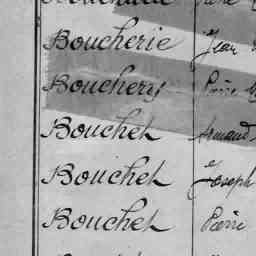 Boucherie Jean
Bouchery Pierre
Bouchet Armand
Bouchet Joseph
Bouchet Pierre